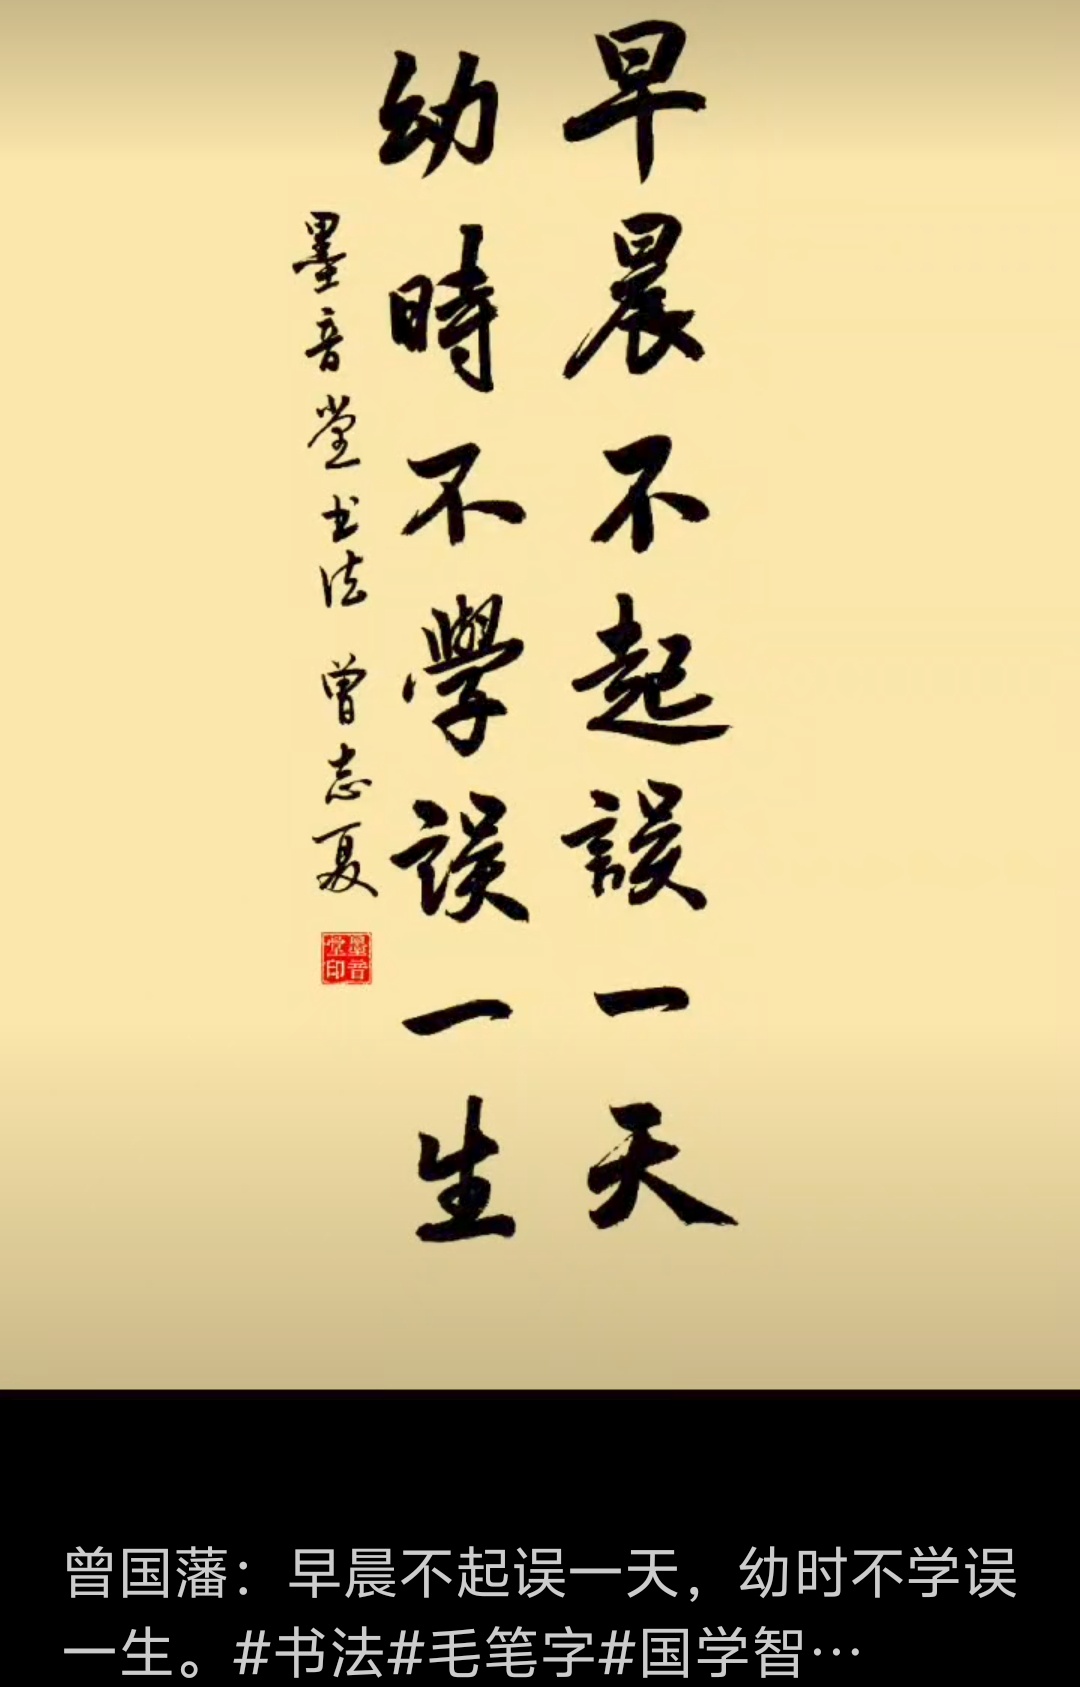 早晨不起誤一天
幼時不學误一生
墨音堂书法 曾志夏
墨音堂印
曾国藩：早晨不起误一天，幼时不学误
一生。#书法#毛笔字#国学智…